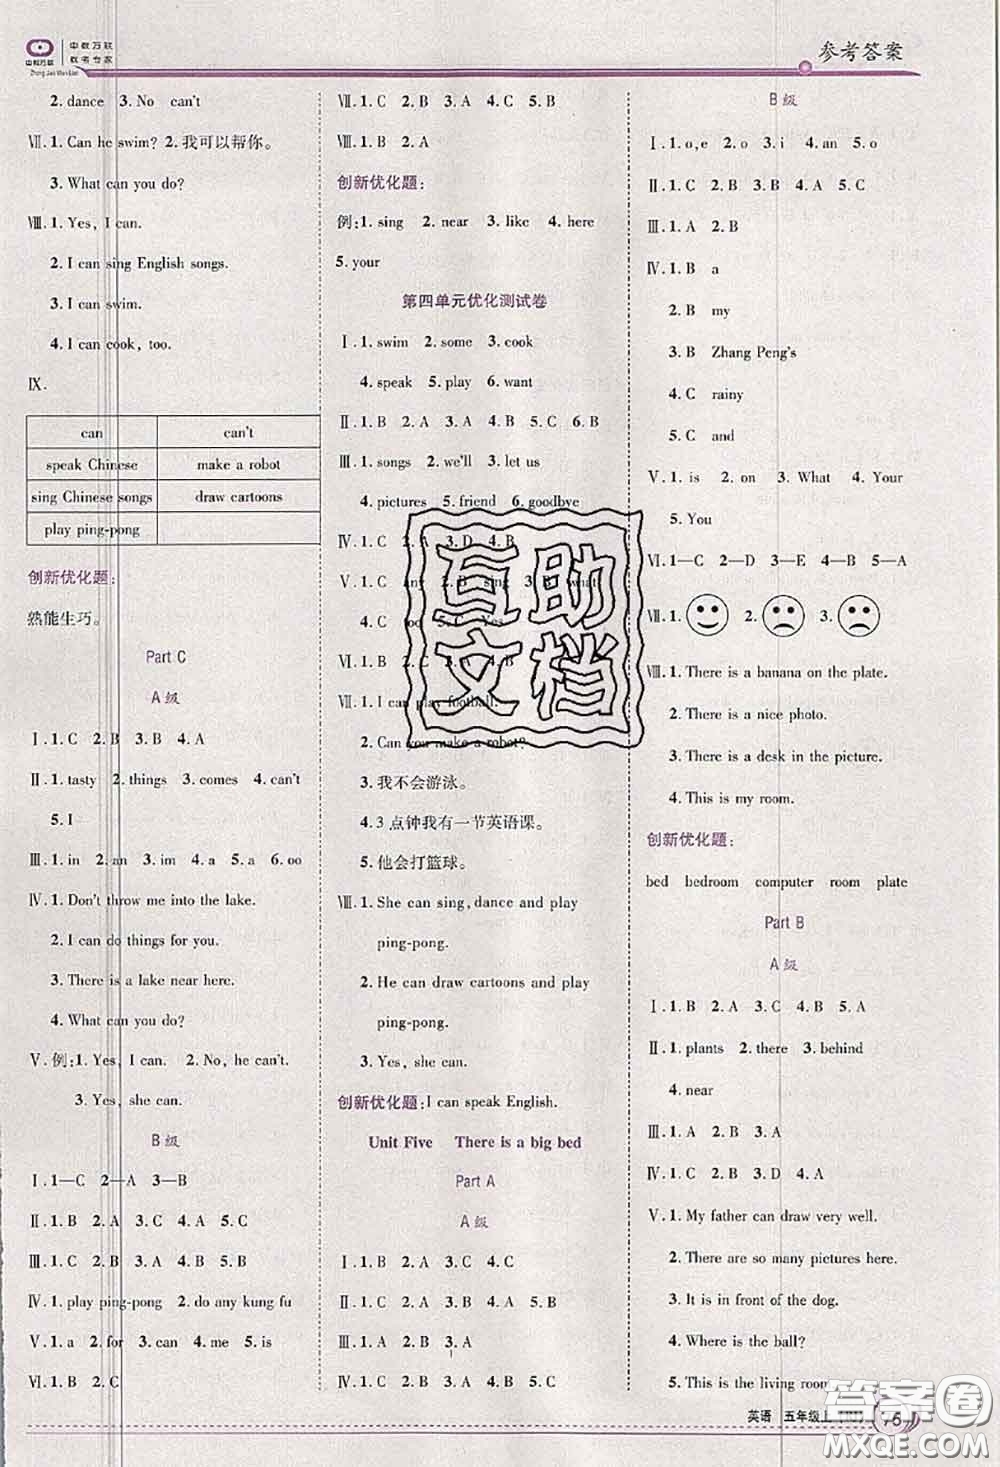 中教万联
教考专家
中教万联
参考答案
2. dance 3. No can't
Ⅶ. 1. Can he swim? 2. 我可以帮你。
3. What can you do?
Ⅷ. 1. Yes, I can.
2. I can sing English songs.
3. I can swim.
4. I can cook, too.
Ⅸ.
can can't
speak Chinese make a robot
sing Chinese songs draw cartoons
play ping-pong
创新优化题：
熟能生巧。
Part C
A 级
Ⅰ. 1. C 2. B 3. B 4. A
Ⅱ. 1. tasty 2. things 3. comes 4. can't
5. I
Ⅲ. 1. in 2. an 3. im 4. a 5. a 6. oo
Ⅳ. 1. Don't throw me into the lake.
2. I can do things for you.
3. There is a lake near here.
4. What can you do?
Ⅴ. 例：1. Yes, I can. 2. No, he can't.
3. Yes, she can.
B 级
Ⅰ. 1—C 2—A 3—B
Ⅱ. 1. B 2. A 3. C 4. A 5. C
Ⅲ. 1. C 2. B 3. A 4. B 5. B
Ⅳ. 1. play ping-pong 2. do any kung fu
Ⅴ. 1. a 2. for 3. can 4. me 5. is
Ⅵ. 1. B 2. C
Ⅶ. 1. C 2. B 3. A 4. C 5. B
Ⅷ. 1. B 2. A
创新优化题：
例：1. sing 2. near 3. like 4. here
5. your
第四单元优化测试卷
Ⅰ. 1. swim 2. some 3. cook
4. speak 5. play 6. want
Ⅱ. 1. B 2. A 3. A 4. B 5. C 6. B
Ⅲ. 1. songs 2. we'll 3. let us
4. pictures 5. friend 6. goodbye
Ⅳ. 1. C 2. A 3. D 4. B
Ⅴ. 1. C any 2. B sing 3. B
4. C too 5. C Yes
Ⅵ. 1. B 2. C 3. A 4. C 5. B
Ⅶ. 1. I can play football.
2. Can you make a robot?
3. 我不会游泳。
4. 3 点钟我有一节英语课。
5. 他会打篮球。
Ⅷ. 1. She can sing, dance and play
ping-pong.
2. He can draw cartoons and play
ping-pong.
3. Yes, she can.
创新优化题：I can speak English.
Unit Five There is a big bed
Part A
A 级
Ⅰ. 1. B 2. A 3. C 4. C
Ⅱ. 1. C 2. B 3. A 4. A 5. B
Ⅲ. 1. A 2. B 3. A
Ⅳ. 1. C 2. A 3. B 4. B 5. C
B 级
Ⅰ. 1. o, e 2. o 3. i 4. an 5. o
Ⅱ. 1. C 2. B 3. B 4. A 5. C
Ⅲ. 1. A 2. B
Ⅳ. 1. B a
2. B my
3. B Zhang Peng's
4. C rainy
5. C and
Ⅴ. 1. is 2. on 3. What 4. Your
5. You
Ⅵ. 1—C 2—D 3—B 4—B 5—A
Ⅶ. 1. 2. 3.
Ⅷ. 1. There is a banana on the plate.
2. There is a nice photo.
3. There is a desk in the picture.
4. This is my room.
创新优化题：
bed bedroom computer room plate
Part B
A 级
Ⅰ. 1. B 2. A 3. C 4. B 5. A
Ⅱ. 1. plants 2. there 3. behind
4. near
Ⅲ. 1. A 2. B 3. A
Ⅳ. 1. C 2. B 3. D 4. A
Ⅴ. 1. My father can draw very well.
2. There are so many pictures here.
3. It is in front of the dog.
4. Where is the ball?
5. This is the living room.
英语 五年级上
互助
文档
答案卷
MXQE.COM